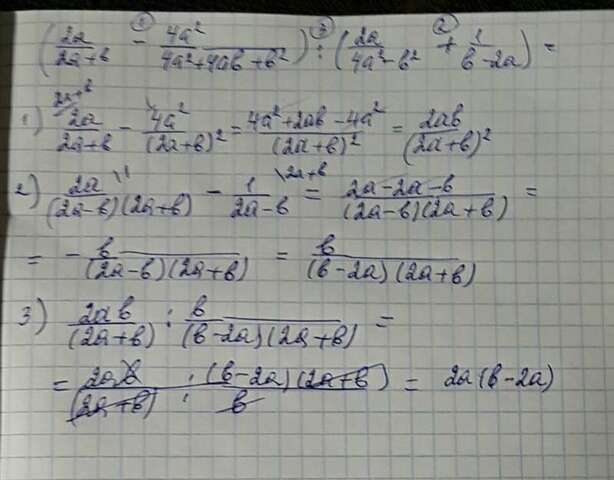 (2a/(2a+b) - 4a²/(4a²+4ab+b²)) : (2a/(4a²-b²) + 1/(b-2a)) =
1) 2a/(2a+b) - 4a²/(2a+b)² = (4a²+2ab-4a²)/(2a+b)² = 2ab/(2a+b)²
2) 2a/((2a-b)(2a+b)) - 1/(2a-b) = (2a-2a-b)/((2a-b)(2a+b)) =
= - b/((2a-b)(2a+b)) = b/((b-2a)(2a+b))
3) 2ab/(2a+b) : b/((b-2a)(2a+b)) =
= 2ab · (b-2a)(2a+b)/((2a+b) · b) = 2a(b-2a)